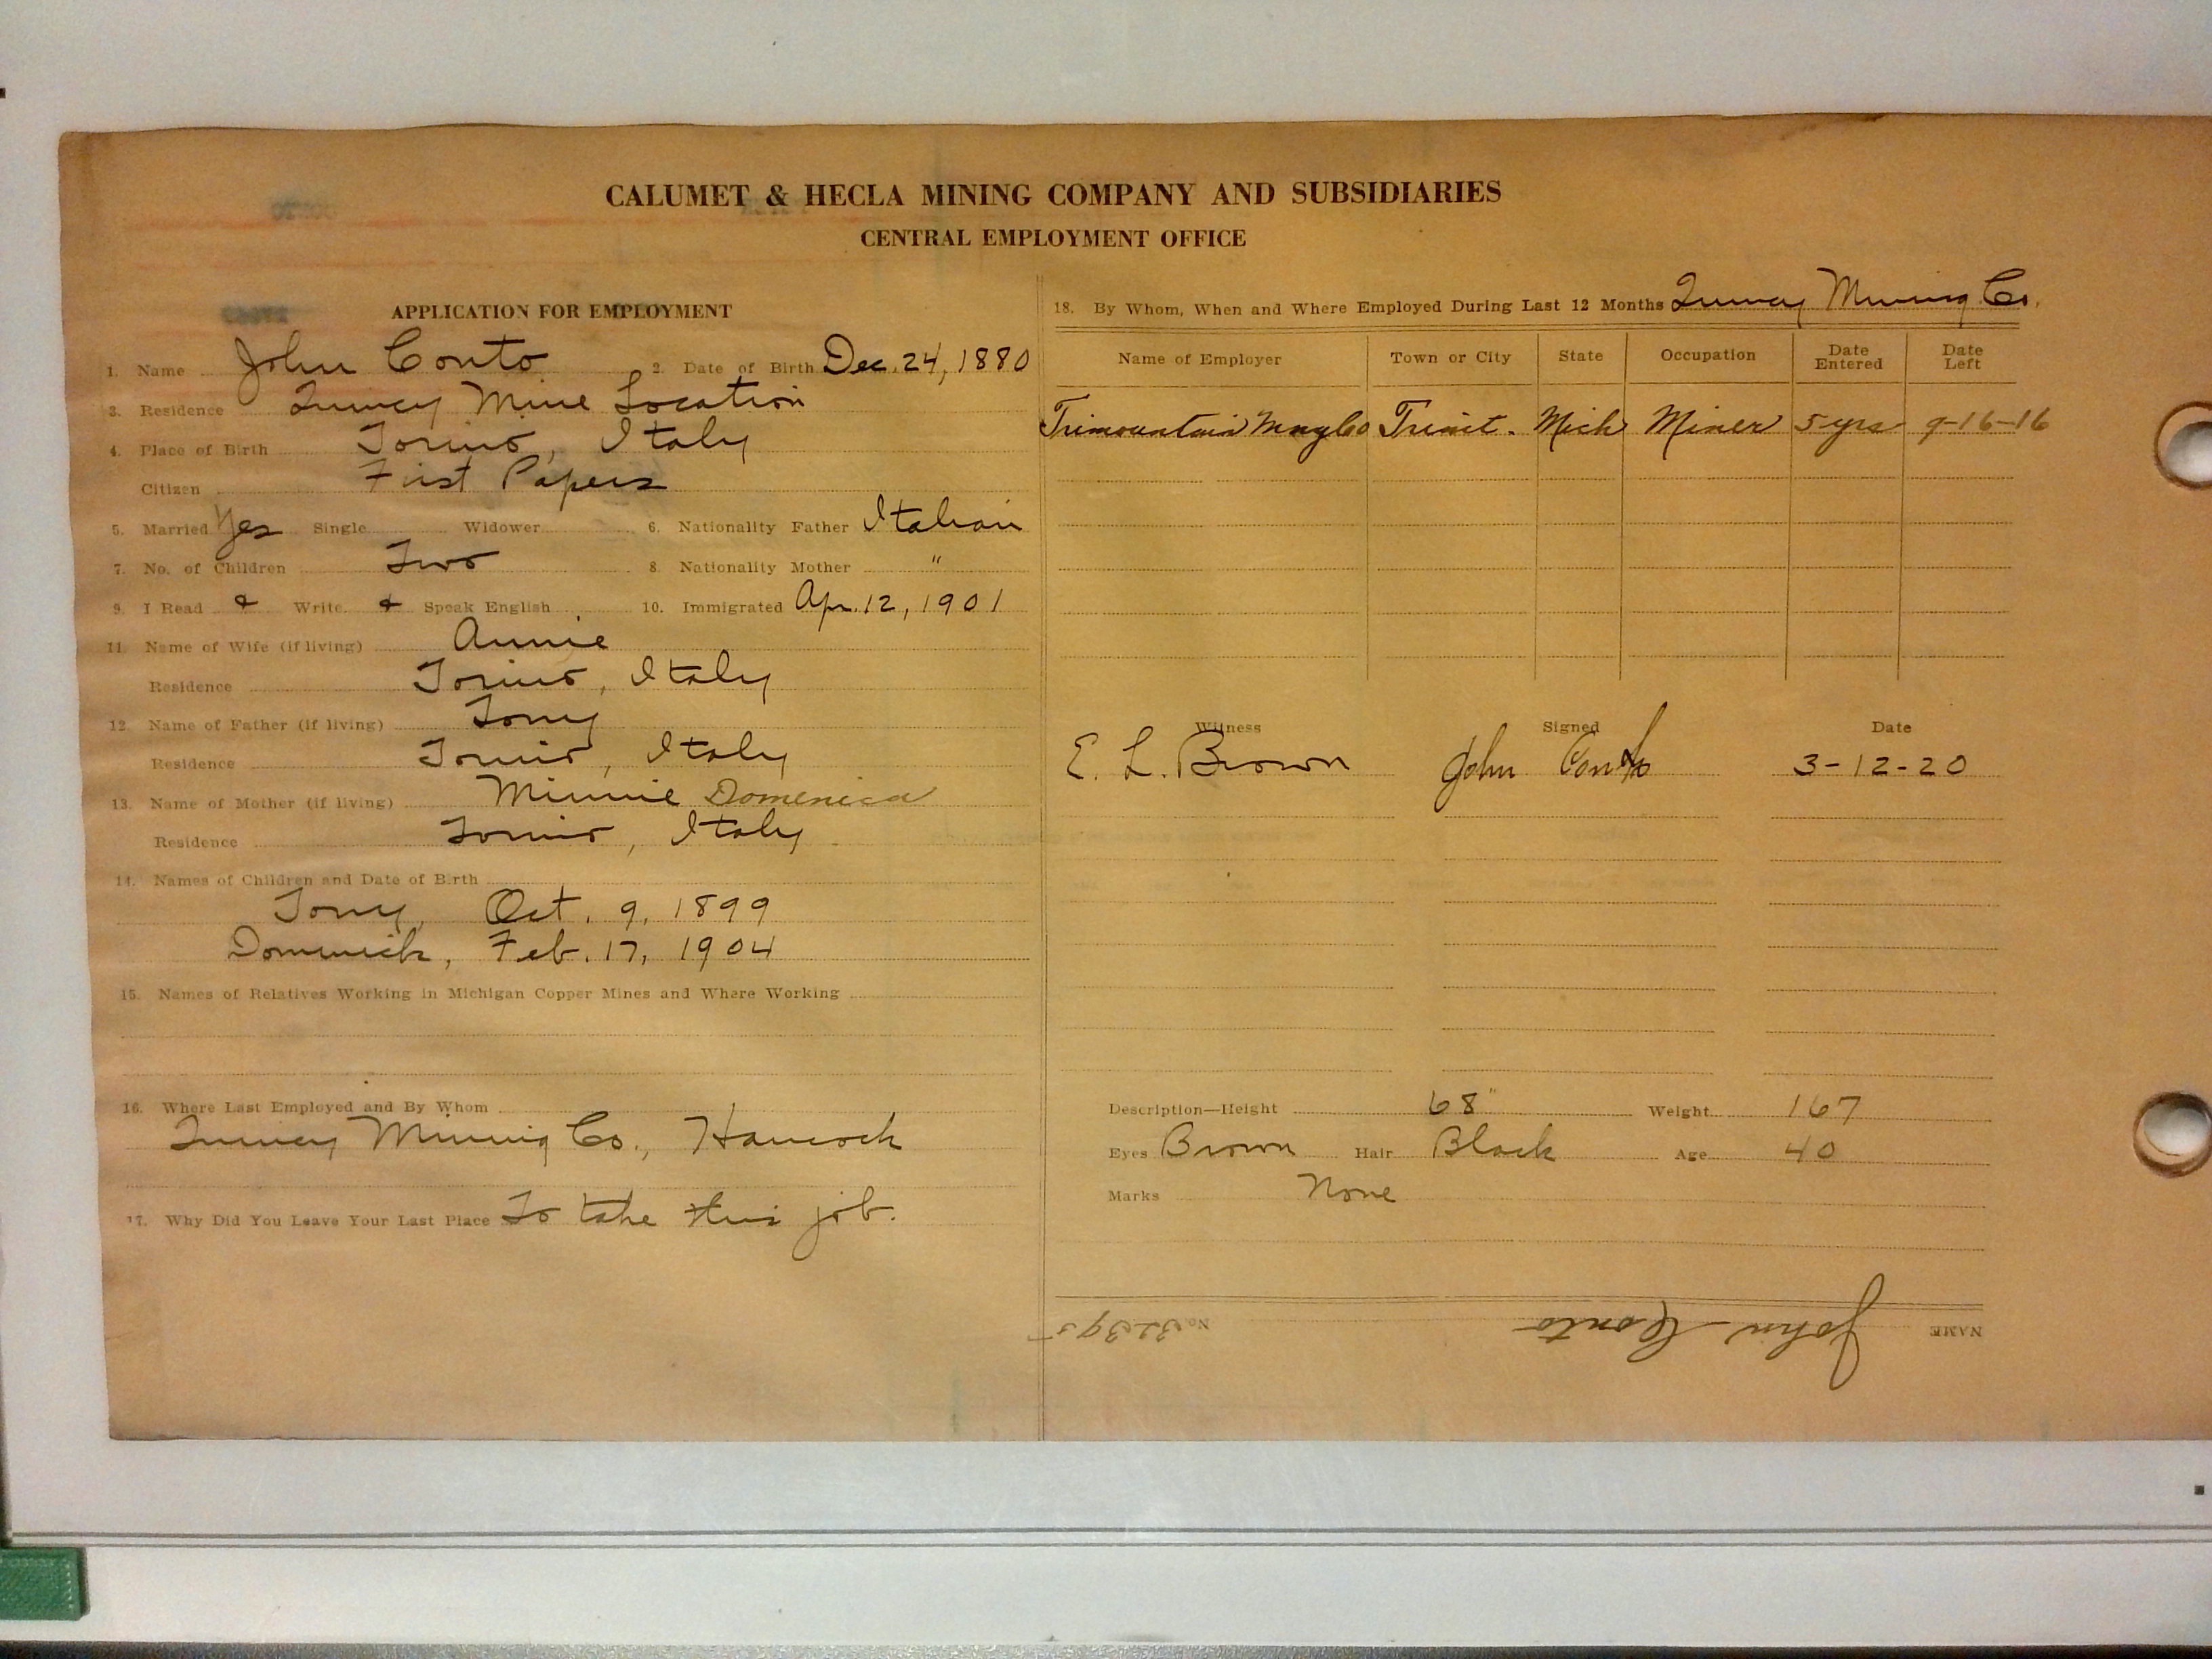 CALUMET & HECLA MINING COMPANY AND SUBSIDIARIES
CENTRAL EMPLOYMENT OFFICE
APPLICATION FOR EMPLOYMENT
1. Name John Conto 2. Date of Birth Dec. 24, 1880
3. Residence Quincy Mine Location
4. Place of Birth Torino, Italy
Citizen First Papers
5. Married Yes Single Widower 6. Nationality Father Italian
7. No. of Children Two 8. Nationality Mother "
9. I Read & Write & Speak English 10. Immigrated Apr. 12, 1901
11. Name of Wife (if living) Annie
Residence Torino, Italy
12. Name of Father (if living) Tony
Residence Torino, Italy
13. Name of Mother (if living) Minnie Domenica
Residence Torino, Italy
14. Names of Children and Date of Birth
Tony, Oct. 9, 1899
Dominick, Feb. 17, 1904
15. Names of Relatives Working in Michigan Copper Mines and Where Working
16. Where Last Employed and By Whom
Quincy Mining Co., Hancock
17. Why Did You Leave Your Last Place To take this job.
18. By Whom, When and Where Employed During Last 12 Months Quincy Mining Co.
Name of Employer Town or City State Occupation Date Entered Date Left
Trimountain Mng Co Trimt. Mich Miner 5 yrs 9-16-16
Witness Signed Date
E. L. Brown John Conto 3-12-20
Description—Height 68" Weight 167
Eyes Brown Hair Black Age 40
Marks None
NAME John Conto No. 32395